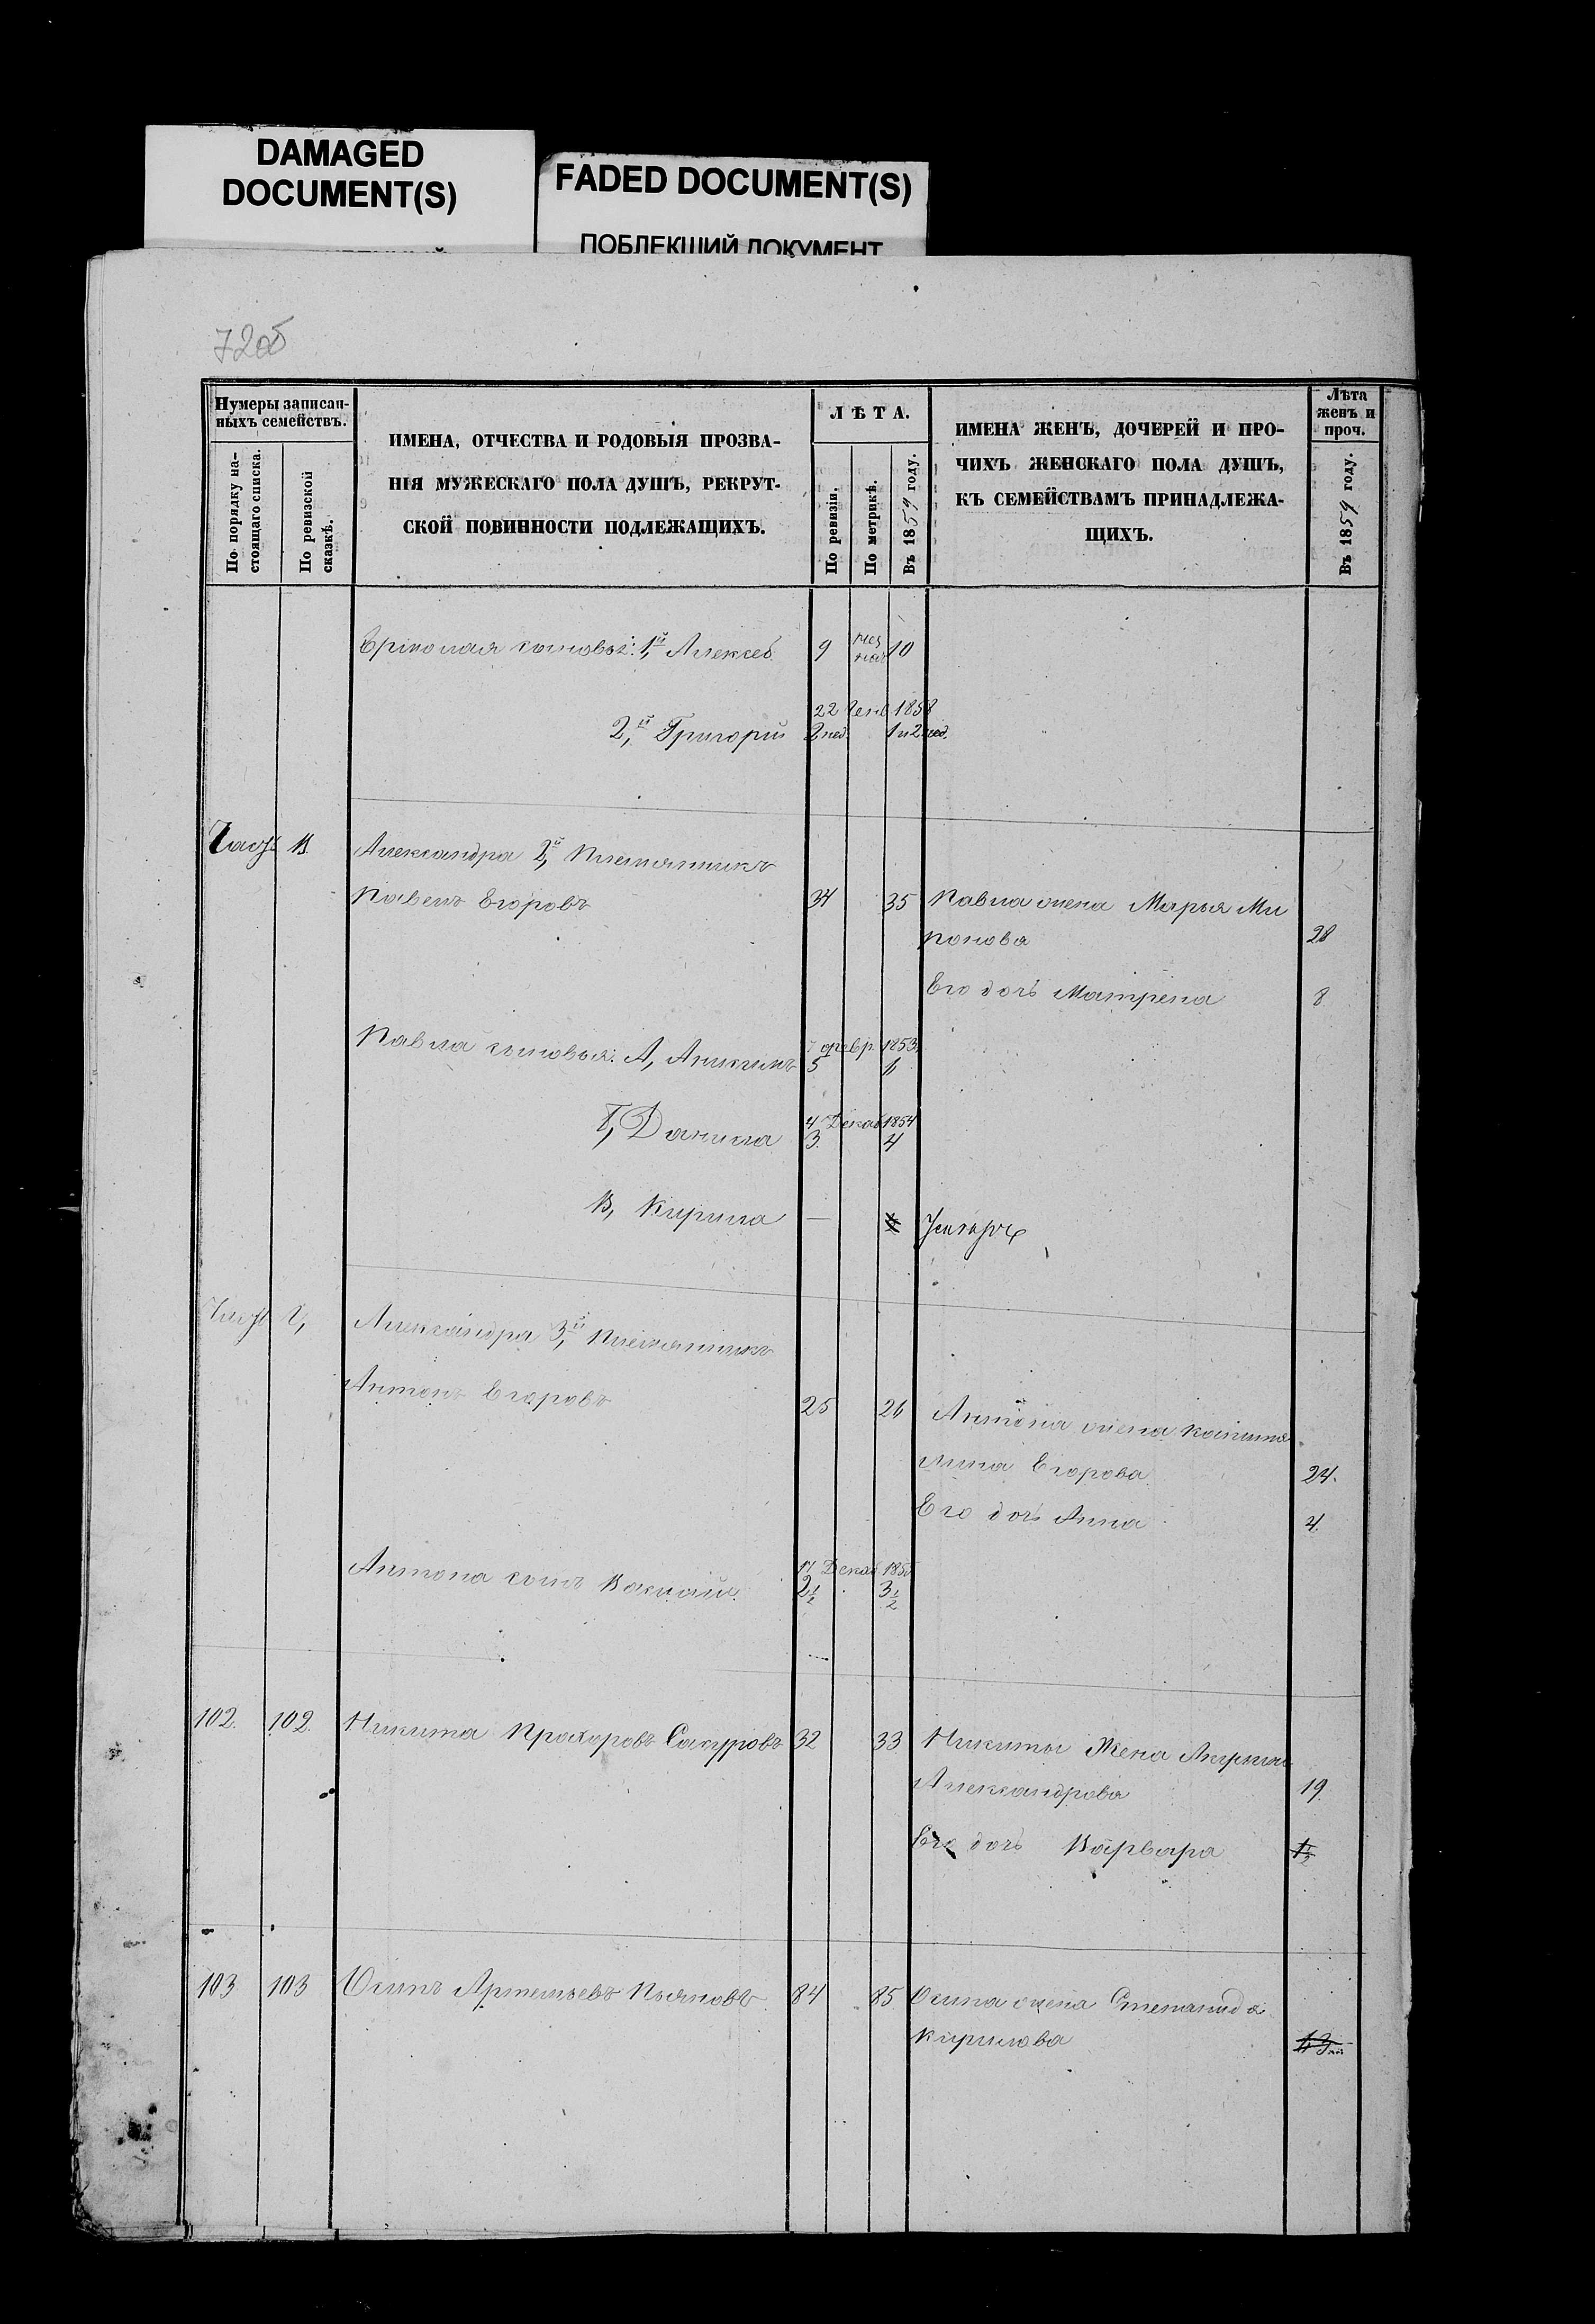 DAMAGED
DOCUMENT(S)
FADED DOCUMENT(S)
ПОБЛЕКШИЙ ДОКУМЕНТ
72об
Нумеры записан-
ныхъ семействъ.
По порядку на-
стоящаго списка.
По ревизской
сказкѣ.
ИМЕНА, ОТЧЕСТВА И РОДОВЫЯ ПРОЗВА-
НІЯ МУЖЕСКАГО ПОЛА ДУШЪ, РЕКРУТ-
СКОЙ ПОВИННОСТИ ПОДЛЕЖАЩИХЪ.
ЛѢТА.
По ревизіи.
По метрикѣ.
Въ 1859 году.
ИМЕНА ЖЕНЪ, ДОЧЕРЕЙ И ПРО-
ЧИХЪ ЖЕНСКАГО ПОЛА ДУШЪ,
КЪ СЕМЕЙСТВАМЪ ПРИНАДЛЕЖА-
ЩИХЪ.
Лѣта
женъ и
проч.
Въ 1859 году.
Ермолая сыновья: 1й, Алексей 9 10
22 Генв. 1858
2,й Григорій 2 нед. 1 и 2 нед.
Часть В
Александра 2,й Племянникъ
Павелъ Егоровъ 34 35 Павла жена Марья Ми
ронова 28
Его дочь Матрена 8
Павла сыновья: А, Аникимъ 7 февр. 1853
5 6
Б, Данила 4 Декаб 1854
3 4
В, Кирила —
Часть Г,
Александра 3,й Племянникъ
Антонъ Егоровъ 25 26 Антона жена Капито
лина Егорова 24.
Его дочь Анна 4.
Антона сынъ Василій 17 Декаб 185
2½ 3½
102. 102. Никита Прохоровъ 32 33 Никиты Жена Акулина
Александрова 19.
Его дочь Варвара 1½
103 103 Осипъ Артемьевъ Пьяновъ 84 85 Осипа жена Степанида
Кирилова